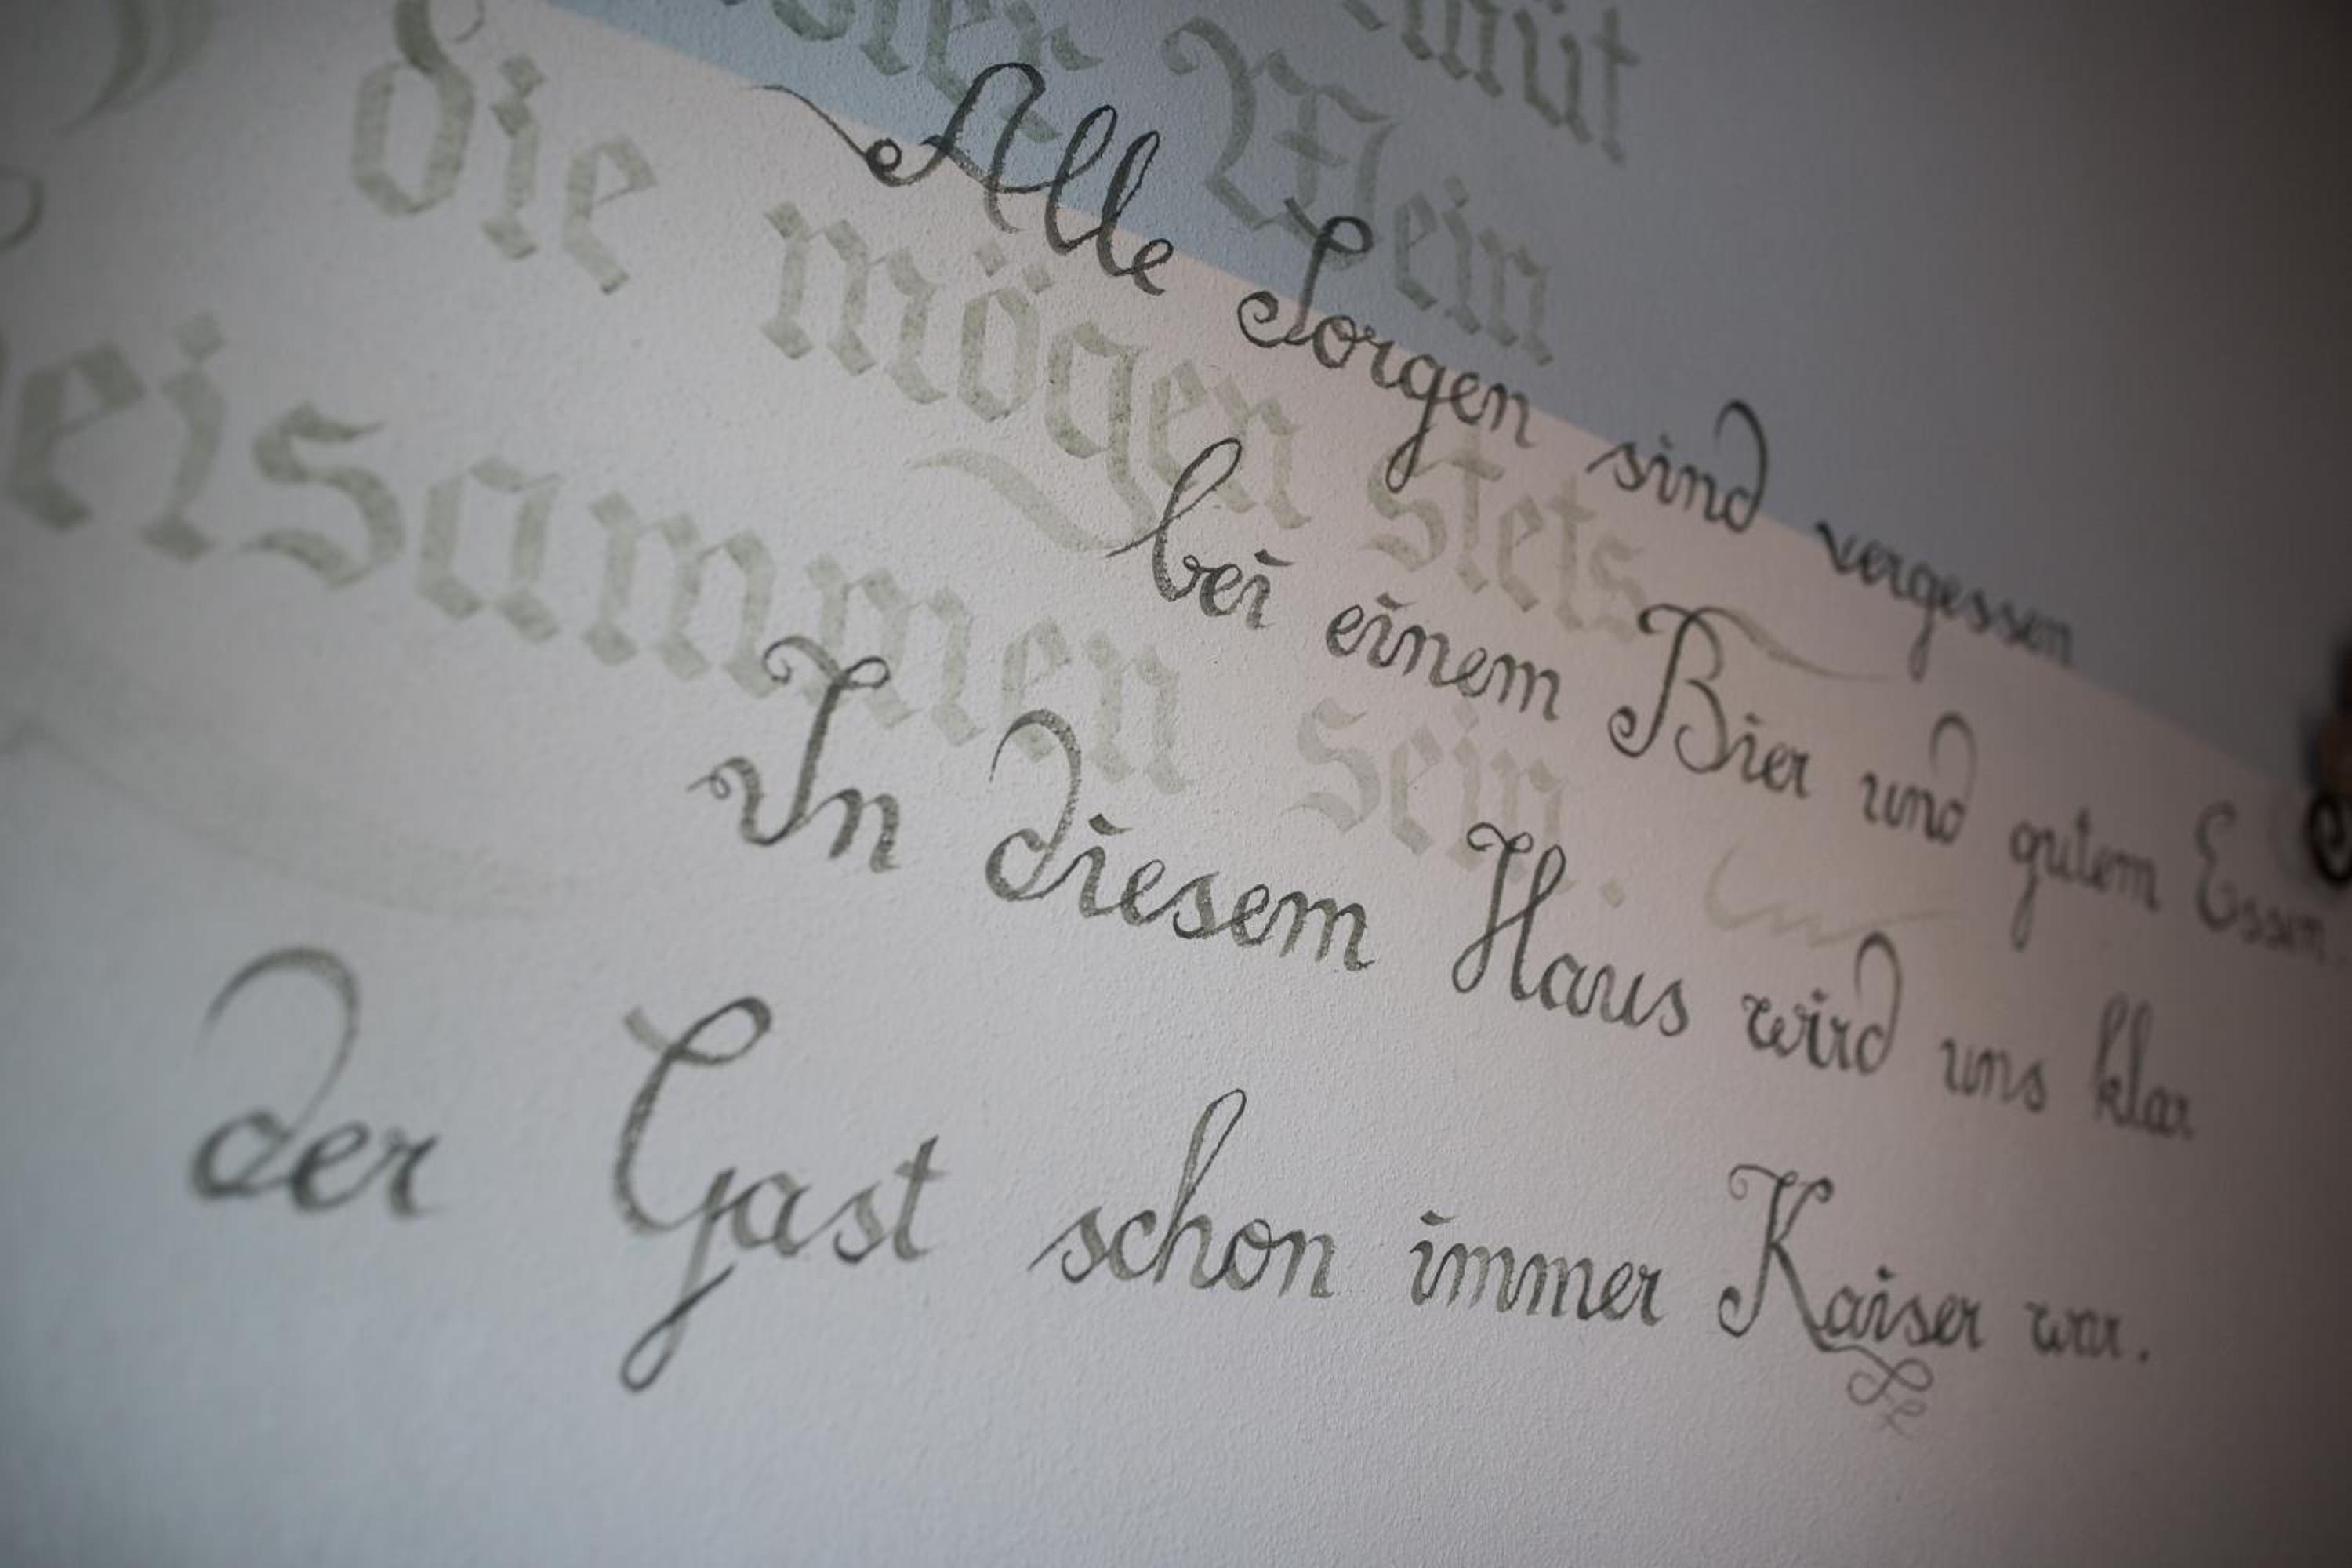 die mögen stets
Wein
beisammen sein.
Alle Sorgen sind vergessen
bei einem Bier und gutem Essen.
In diesem Haus wird uns klar
der Gast schon immer Kaiser war.